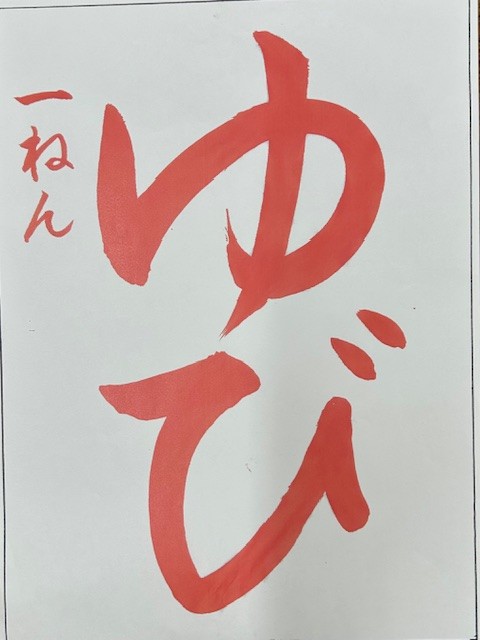 ゆび
一ねん